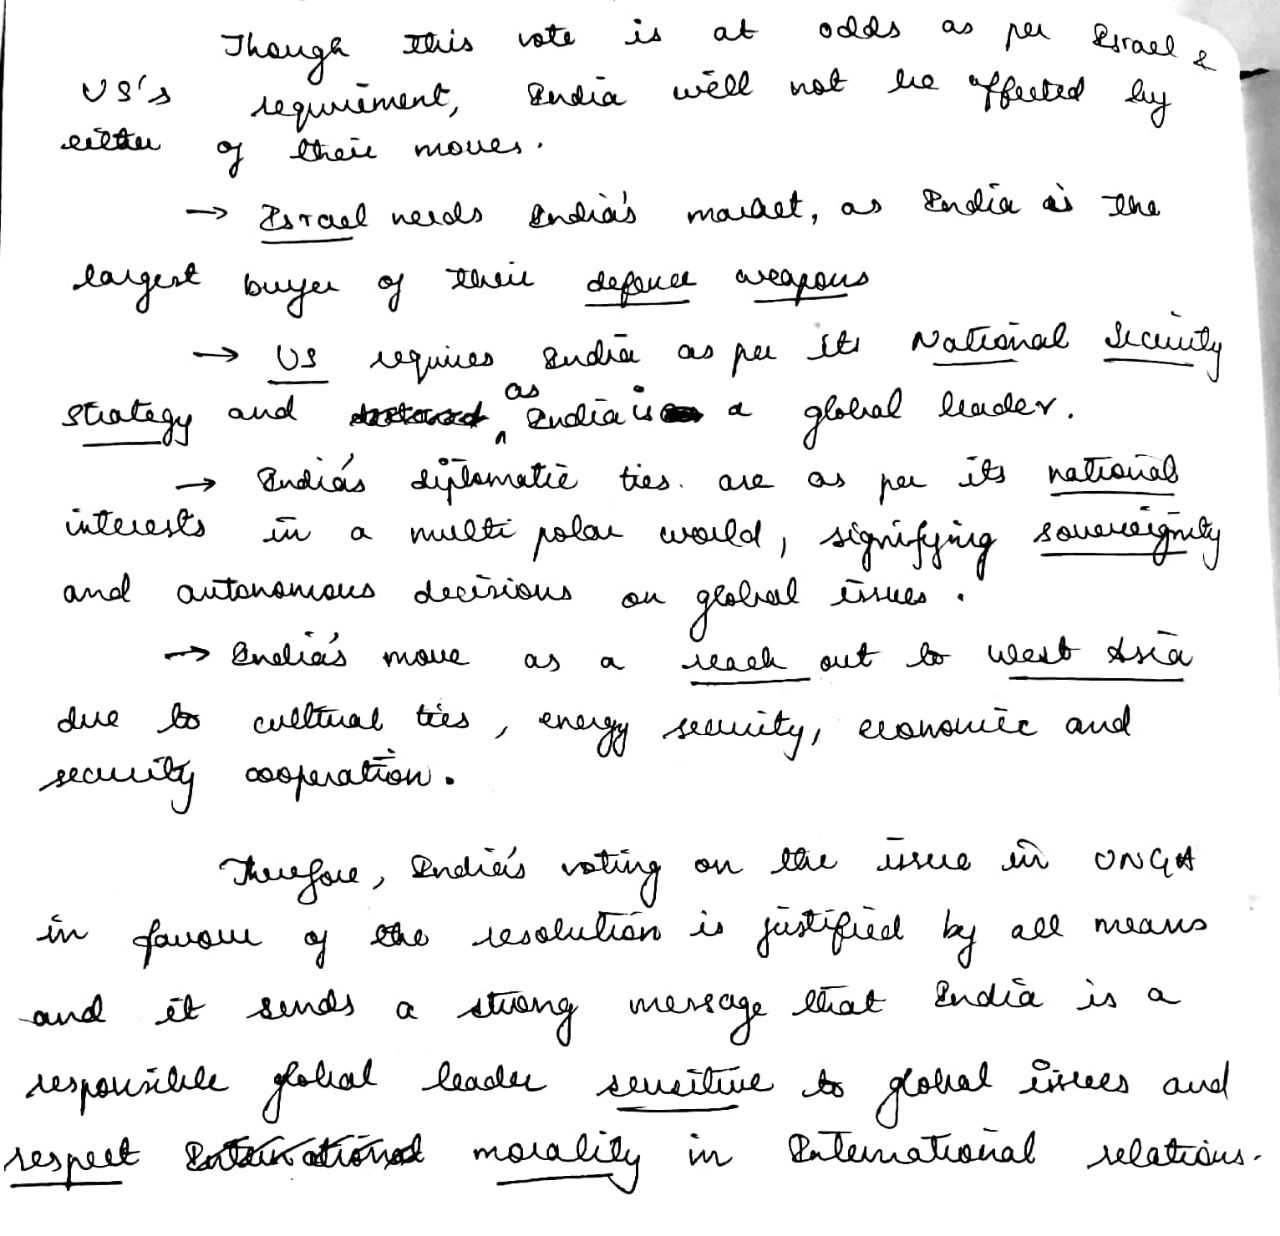 Though this vote is at odds as per Israel &
US's requirement, India will not be affected by
either of their moves.
→ Israel needs India's market, as India is the
largest buyer of their defence weapons
→ US requires India as per its National Security
strategy and as India is a global leader.
→ India's diplomatic ties are as per its national
interests in a multi polar world, signifying sovereignity
and autonomous decisions on global issues.
→ India's move as a reach out to West Asia
due to cultural ties, energy security, economic and
security cooperation.
Therefore, India's voting on the issue in UNGA
in favour of the resolution is justified by all means
and it sends a strong message that India is a
responsible global leader sensitive to global issues and
respect morality in International relations.